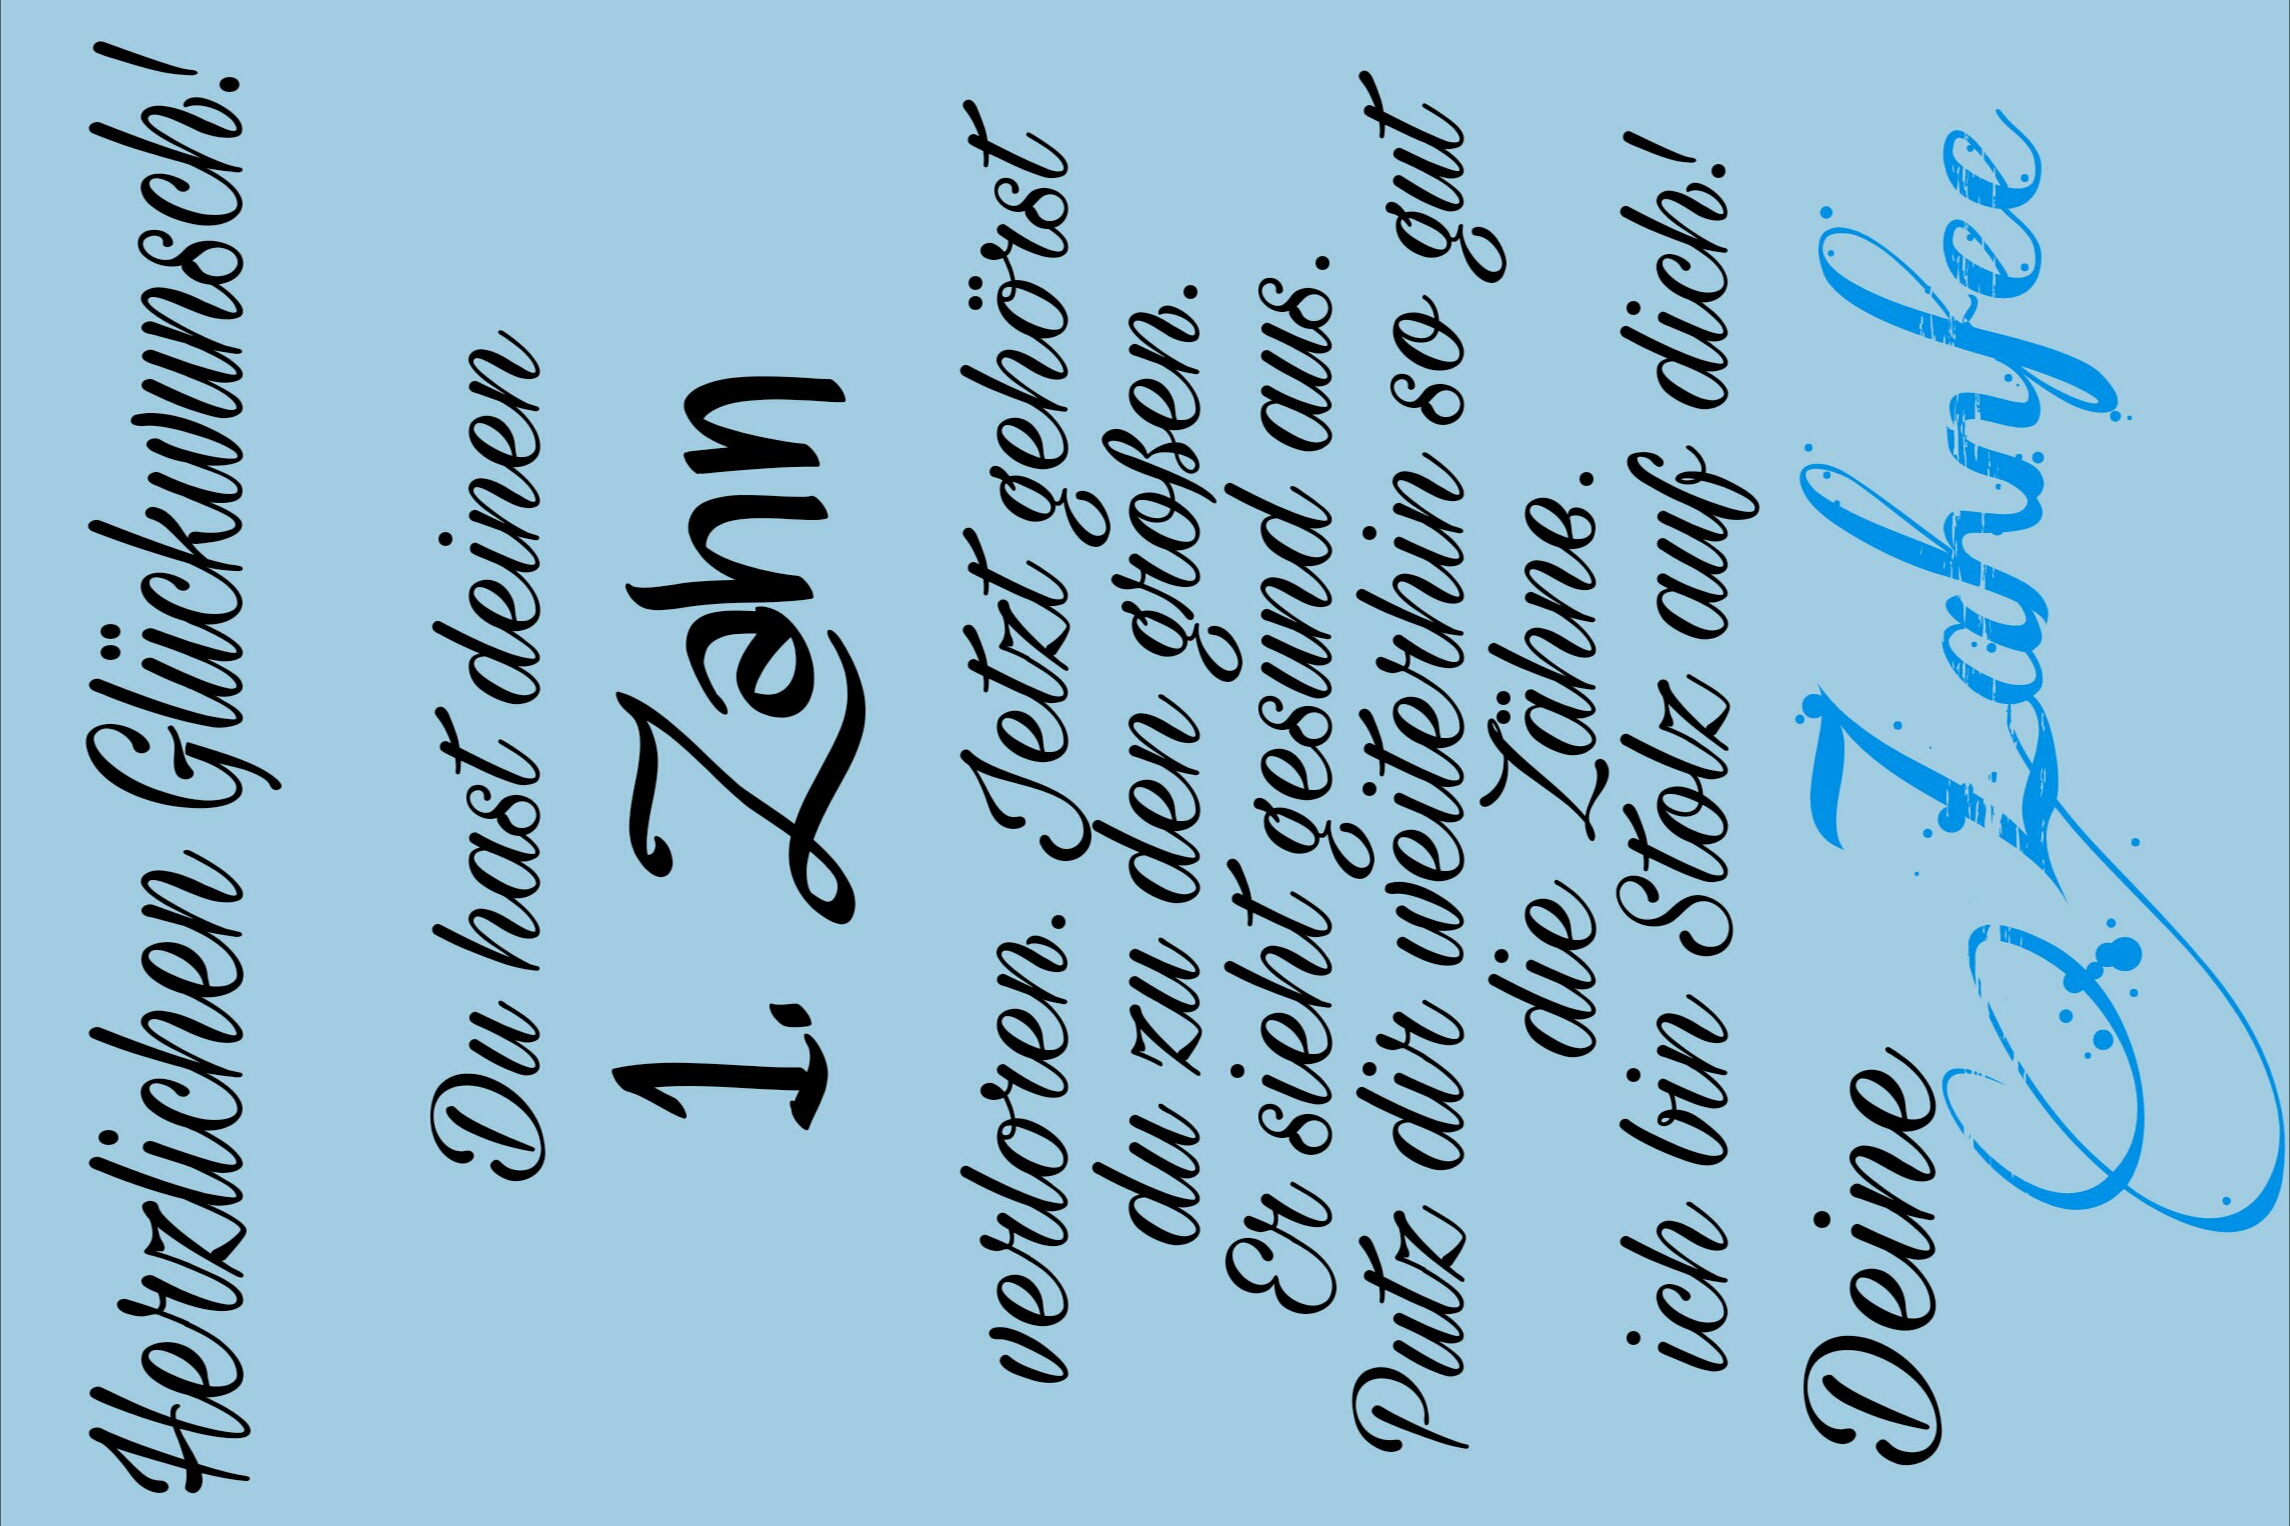 Herzlichen Glückwunsch!
Du hast deinen
1. Zahn
verloren. Jetzt gehörst
du zu den großen.
Er sieht gesund aus.
Putz dir weiterhin so gut
die Zähne.
ich bin Stolz auf dich!
Deine
Zahnfee